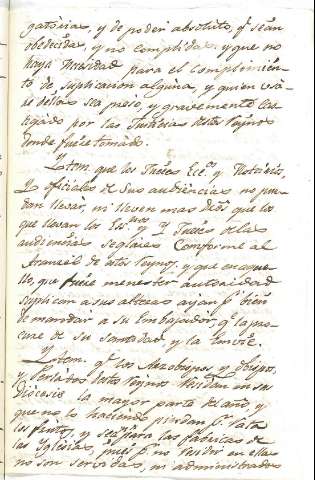 gatorias, y de poder absoluto, q̃ sean
obedecidas, y no complidas, y que no
haya Necesidad para el complimien
to de suplicacion alguna, y quien usa
re dellas sea preso, y gravemente cas
tigado por las Justicias destos Reynos
donde fuere tomado.
Ytem. que los Jueces Ecc.os y Notarios,
y oficiales de sus audiencias no pue
dan llevar, ni lleven mas dros que los
que llevan los Es.nos y Jueces de las
audiencias seglares Conforme al
Aranzel de estos Reynos, y que en aque
llo, que fuere menester autoridad
suplican a sus altezas ayan p.r bien
de mandar a su Embajador, q̃ la pro
cure de su Santidad, y la
Ytem. q̃ los Arzobispos, y Obispos,
y Perlados destos Reynos Residan en sus
Diocesis la mayor parte del año, y
que no lo haciendo pierdan p.r rata
los frutos, y sean para las fabricas de
las Yglesias, pues p.r no Residir en ellas
no son servidas, ni administrados